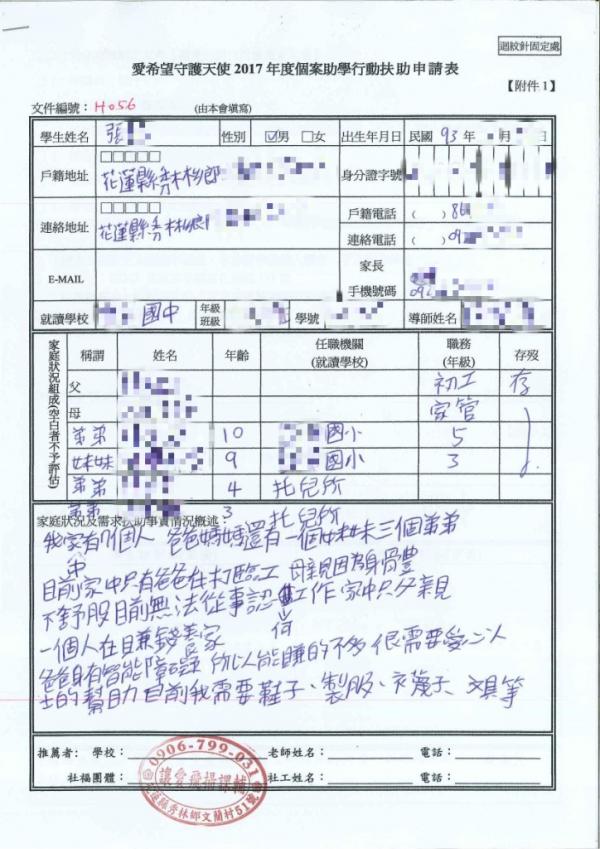 迴紋針固定處
愛希望守護天使 2017 年度個案助學行動扶助申請表
【附件 1】
文件編號：H056 (由本會填寫)
學生姓名 張 性別 ☑男 □女 出生年月日 民國 93 年 月 日
戶籍地址 □□□□□ 花蓮縣秀林鄉 身分證字號
連絡地址 □□□□□ 花蓮縣秀林鄉 戶籍電話 ( ) 86
連絡電話 ( ) 09
E-MAIL 家長手機號碼 09
就讀學校 國中 年級班級 學號 導師姓名
家庭狀況組成(空白者不予評估)
稱謂 姓名 年齡 任職機關(就讀學校) 職務(年級) 存歿
父 初工 存
母 家管
弟弟 10 國小 5
妹妹 9 國小 3
弟弟 4 托兒所
弟弟 3 托兒所
家庭狀況及需求扶助事實情況概述：
我家有7個人 爸爸媽媽還有一個妹妹三個弟弟
目前家中只有爸爸在打臨工 母親因為身體
不舒服目前無法從事任何工作 家中只父親
一個人在賺錢養家
爸爸有智能障礙 所以能賺的不多 很需要愛心人
士的幫助 目前我需要鞋子、製服、衣襪子、文具等
推薦者: 學校： 老師姓名： 電話：
社福團體： 社工姓名： 電話：
0906-799-031
讓愛飛揚課輔
花蓮縣秀林鄉文蘭村51號